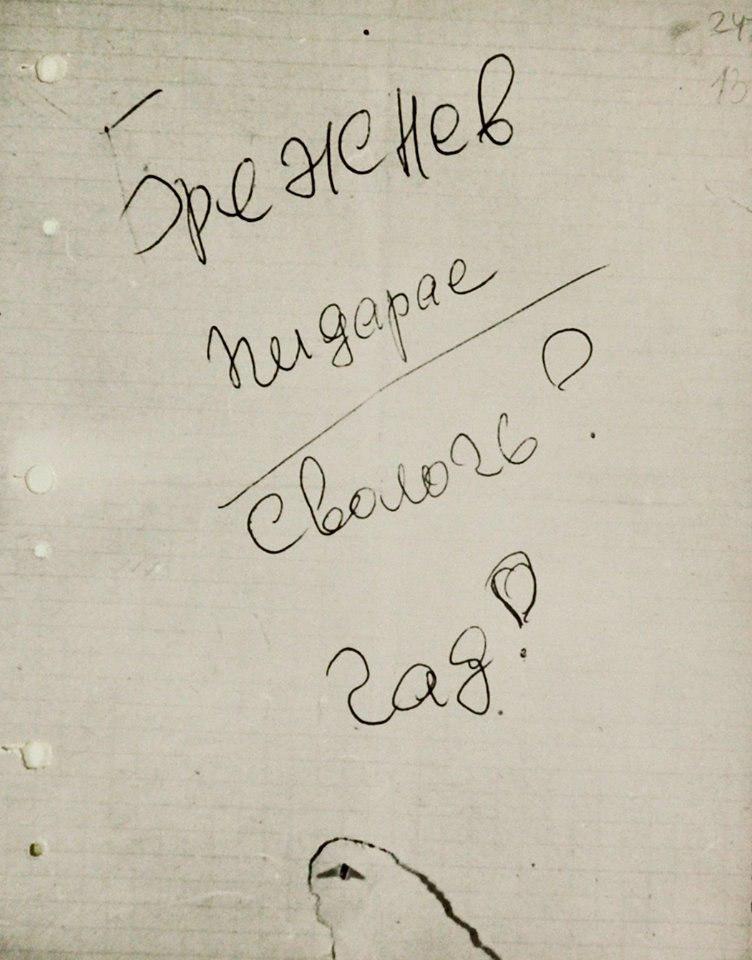 24
13
Брежнев
пидарас
сволочь!
гад!